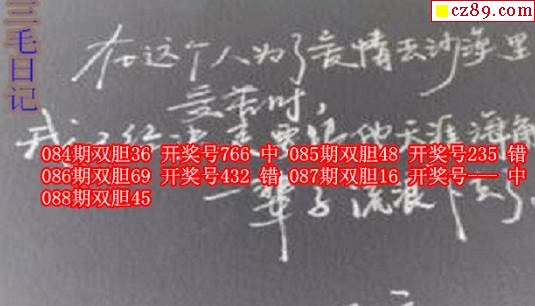 cz89.com
三毛日记
在这个人为了爱情去沙漠里
受苦时，
我 天涯海角
084期双胆36 开奖号766 中 085期双胆48 开奖号235 错
086期双胆69 开奖号432 错 087期双胆16 开奖号--- 中
088期双胆45
一辈子流浪下去了